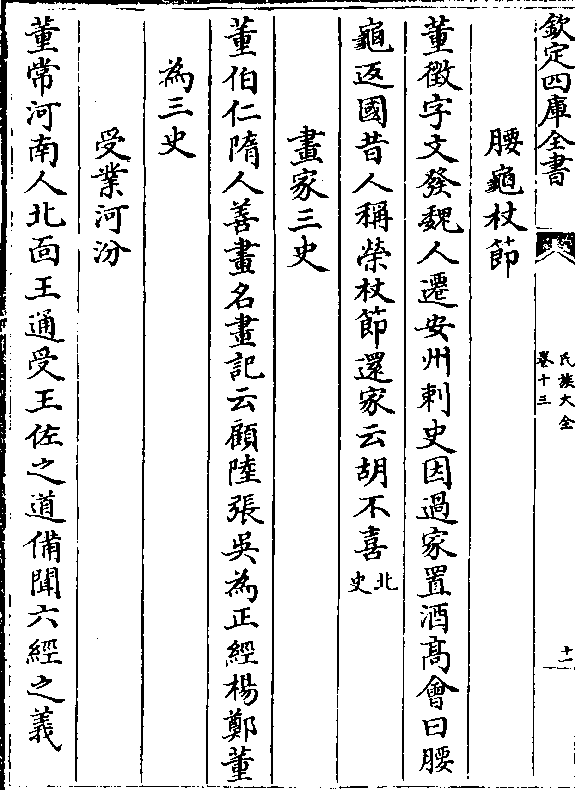 欽定四庫全書
氏族大全
卷十三
十一
腰龜杖節
董徵字文發魏人遷安州刺史因過家置酒高會曰腰
龜返國昔人稱榮杖節還家云胡不喜北史
畫家三史
董伯仁隋人善畫名畫記云顧陸張吳為正經楊鄭董
為三史
受業河汾
董常河南人北面王通受王佐之道備聞六經之義